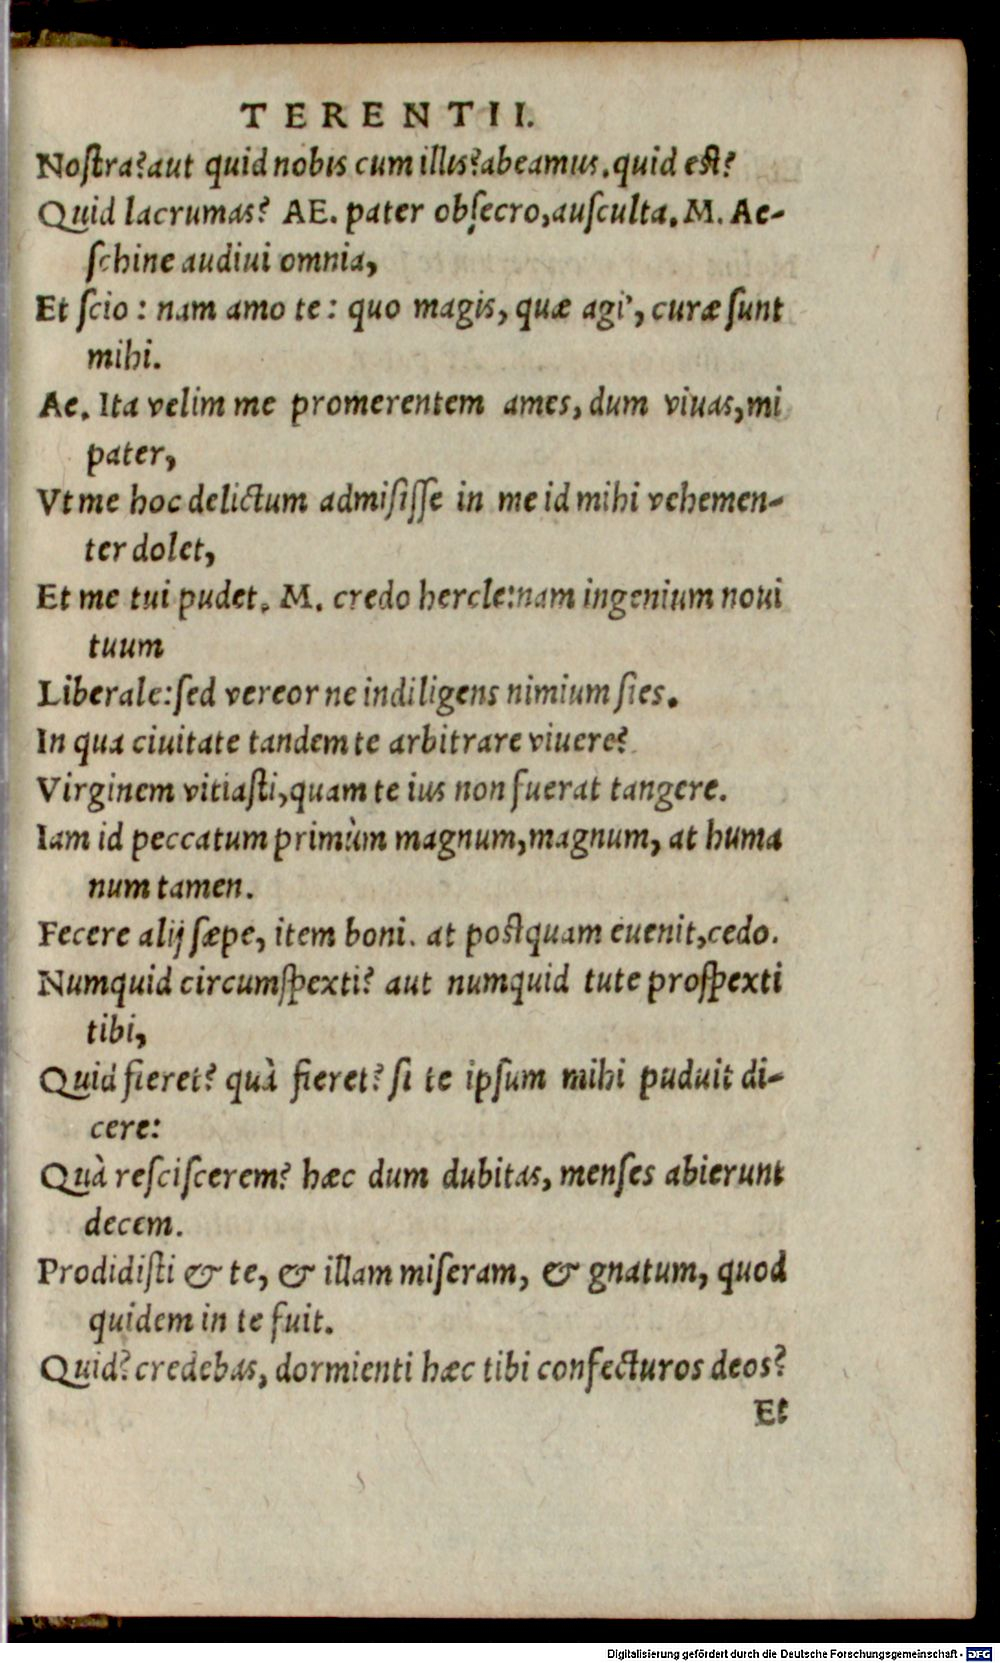 TERENTII.
Noſtra? aut quid nobis cum illis? abeamus. quid eſt?
Quid lacrumas? AE. pater obſecro, auſculta. M. Ae-
ſchine audiui omnia,
Et ſcio: nam amo te: quo magis, quæ agi', curæ ſunt
mihi.
Ae. Ita velim me promerentem ames, dum viuas, mi
pater,
Vt me hoc delictum admiſiſſe in me id mihi vehemen-
ter dolet,
Et me tui pudet. M. credo hercle: nam ingenium noui
tuum
Liberale: ſed vereor ne indiligens nimium ſies.
In qua ciuitate tandem te arbitrare viuere?
Virginem vitiaſti, quam te ius non fuerat tangere.
Iam id peccatum primùm magnum, magnum, at huma
num tamen.
Fecere alij ſæpe, item boni. at poſtquam euenit, cedo.
Numquid circumſpexti? aut numquid tute proſpexti
tibi,
Quid fieret? quà fieret? ſi te ipſum mihi puduit di-
cere:
Quà reſciſcerem? hæc dum dubitas, menſes abierunt
decem.
Prodidiſti & te, & illam miſeram, & gnatum, quod
quidem in te fuit.
Quid? credebas, dormienti hæc tibi confecturos deos?
Et
Digitalisierung gefördert durch die Deutsche Forschungsgemeinschaft - DFG